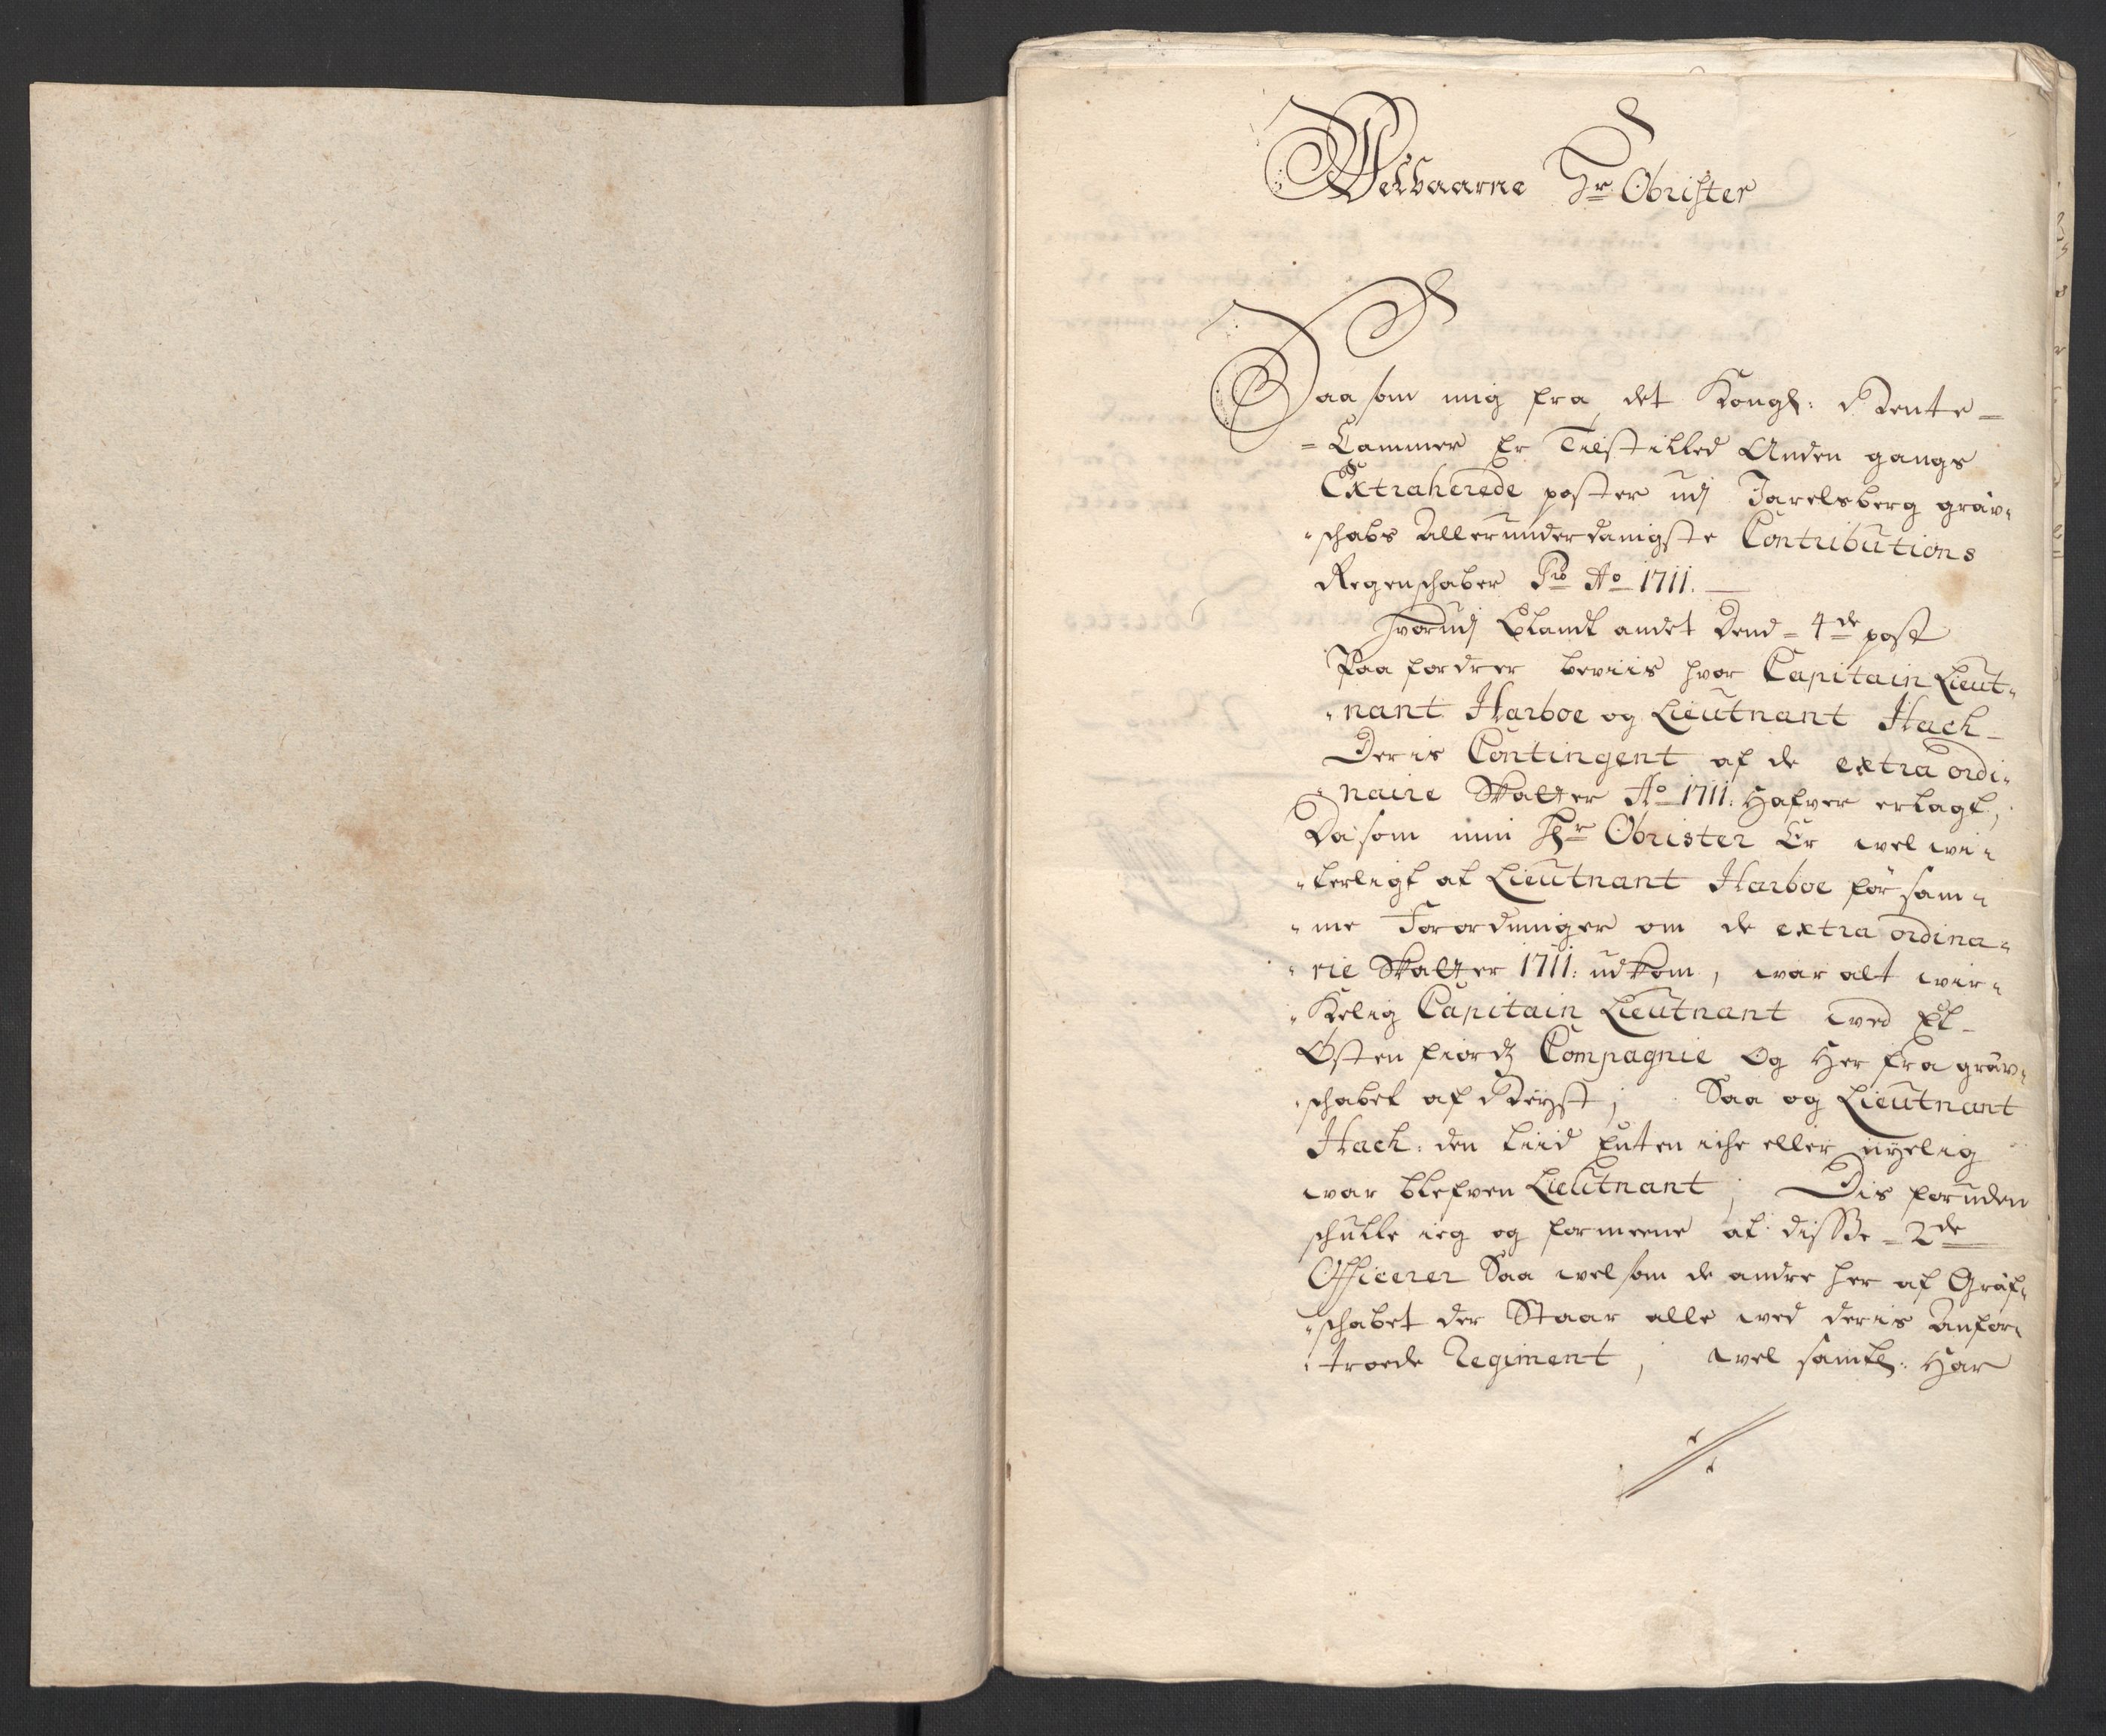 Welbaarne Hr Obrister
Saasom mig fra det Kongl: Rente-
=Cammer Er Tilstilled Anden gangs
Extraherede poster udj Jarelsberg græv-
-schabs Allerunderdanigste Contributions
Regenschaber Pro Ao 1711.
Hvorudj Blandt andet Dend = 4de post
Paa fordrer beviis hvor Capitain Lieut-
-nant Harboe og Lieutnant Hach
Deris Contingent af de extra ordi-
-naire Skatter Ao 1711: Hafver erlagt,
Da som nu Hr Obrister Er vel vi-
-terligt at Lieutnant Harboe før sam-
-me Forordninger om de extra ordina-
-rie Skatter 1711: udkom, var alt vir-
-kelig Capitain Lieutnant ved Et
Østen fiordz Compagnie Og Her fra græv-
-schabet af Reyst; Saa og Lieutnant
Hach: den tiid Enten iche eller nyelig
var blefven Lieutnant; Dis foruden
schulle ieg og formeene at disse = 2de
Officerer Saa vel som de andre her af Græf-
-schabet der Staar alle ved deris Anfor-
-troede Regiment, vel samtl: Har